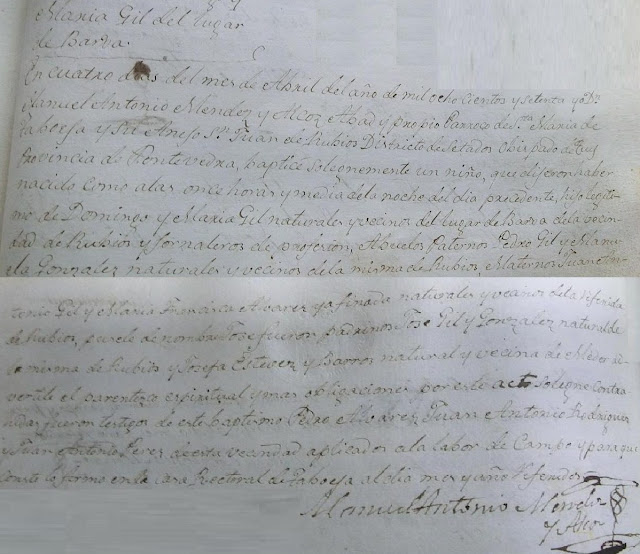 Maria Gil del lugar
de Barda.
En cuatro dias del mes de Abril del año de mil ocho cientos y setenta yo Dn
Manuel Antonio Mendez y Alcoz Abad y propio Parroco de Sta Maria de
Taboeja y su Anejo Sn Juan de Rubios Districto de Setados Obispado de Tuy
Provincia de Pontevedra, baptice solegnemente un niño, que dijeron haber
nacido como a las once horas y media de la noche del dia precedente, hijo legiti-
mo de Domingo y Maria Gil naturales y vecinos del lugar de Barda de la vecin-
dad de Rubios y jornaleros de profesion, Abuelos Paternos Pedro Gil y Manu-
ela Gonzalez naturales y vecinos de la misma de Rubios, Maternos Juan An-
tonio Gil y Maria Francisca Alvarez ya finada naturales y vecinos de la referida
de Rubios, pusele de nombre Jose fueron padrinos Jose Gil y Gonzalez natural de
la misma de Rubios y Josefa Estevez y Barros natural y vecina de
el parentezco espiritual y mas obligaciones por este acto solegne contra
hidas fueron testigos de este baptismo Pedro Alvarez Juan Antonio Rodriguez
y Juan Antonio Perez de esta vecindad aplicados a la labor de Campo y para que
conste lo firmo en la casa Rectoral de Taboeja al dia mes y año referidos
Manuel Antonio Mendez
y Alcoz